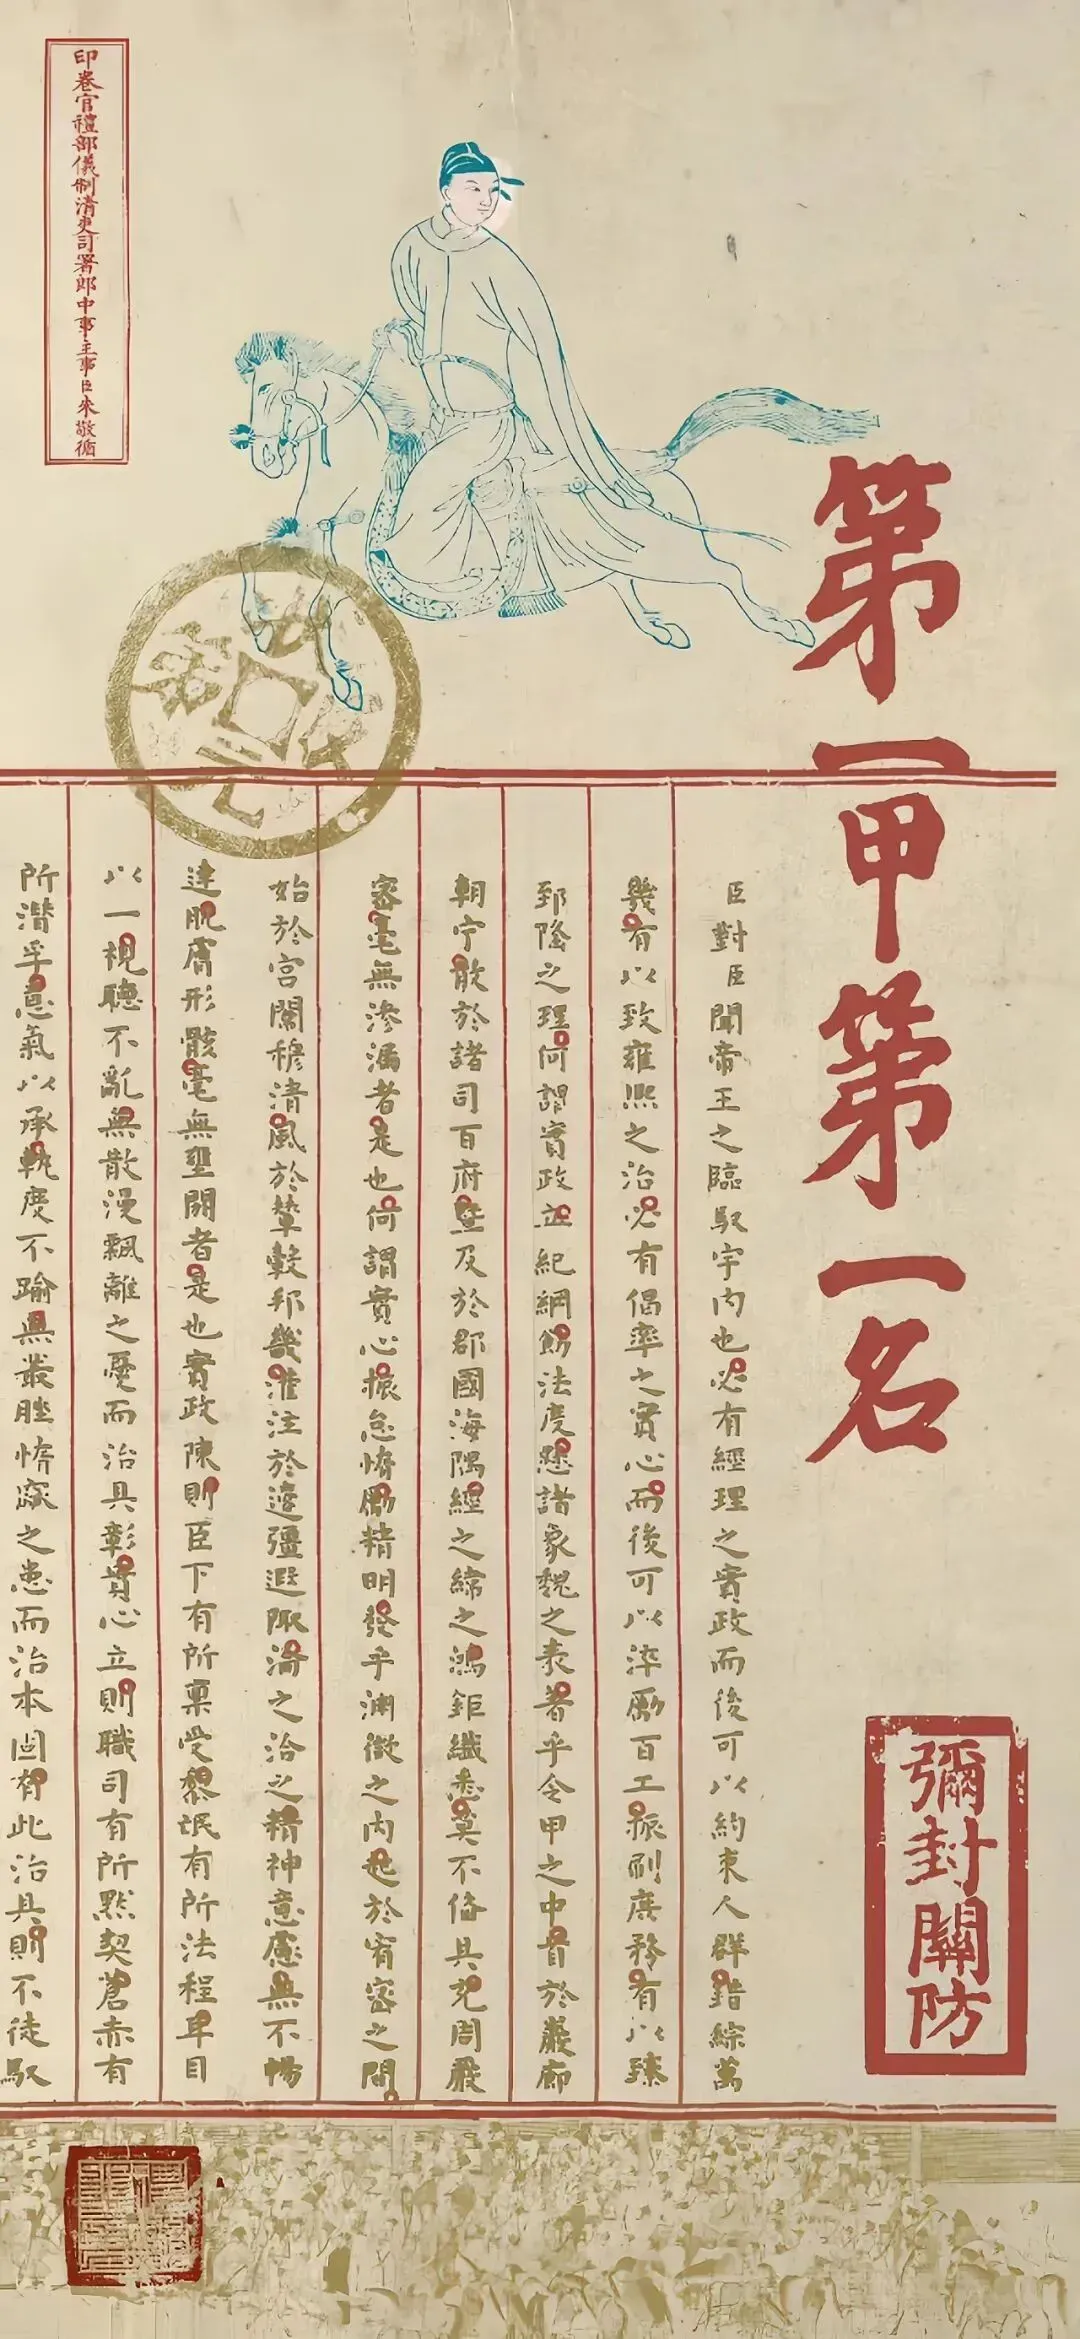 第一甲第一名
彌封關防
臣對臣聞帝王之臨馭宇內也必有經理之實政而後可以約束人群錯綜萬
幾有以致雍熙之治必有倡率之實心而後可以淬勵百工振刷庶務有以臻
郅隆之理何謂實政立紀綱飭法度懸諸象魏之表著乎令甲之中首於巖廊
朝宁散於諸司百府暨及於郡國海隅經之緯之鴻鉅纖悉莫不備具充周嚴
密毫無滲漏者是也何謂實心振怠惰勵精明發乎淵微之內起於宥密之間
始於宮闈穆清風於輦轂邦畿灌注於邊疆遐陬瀹之洽之精神意慮無不暢
達肌膚形骸毫無壅閼者是也實政陳則臣下有所稟受黎氓有所法程耳目
以一視聽不亂無散漫飄離之憂而治具彰實心立則職司有所默契蒼赤有
所潛孚意氣以承軌度不踰無叢脞惰窳之患而治本固有此治具則不徒馭
印卷官禮部儀制清吏司署郎中事主事臣來敬循